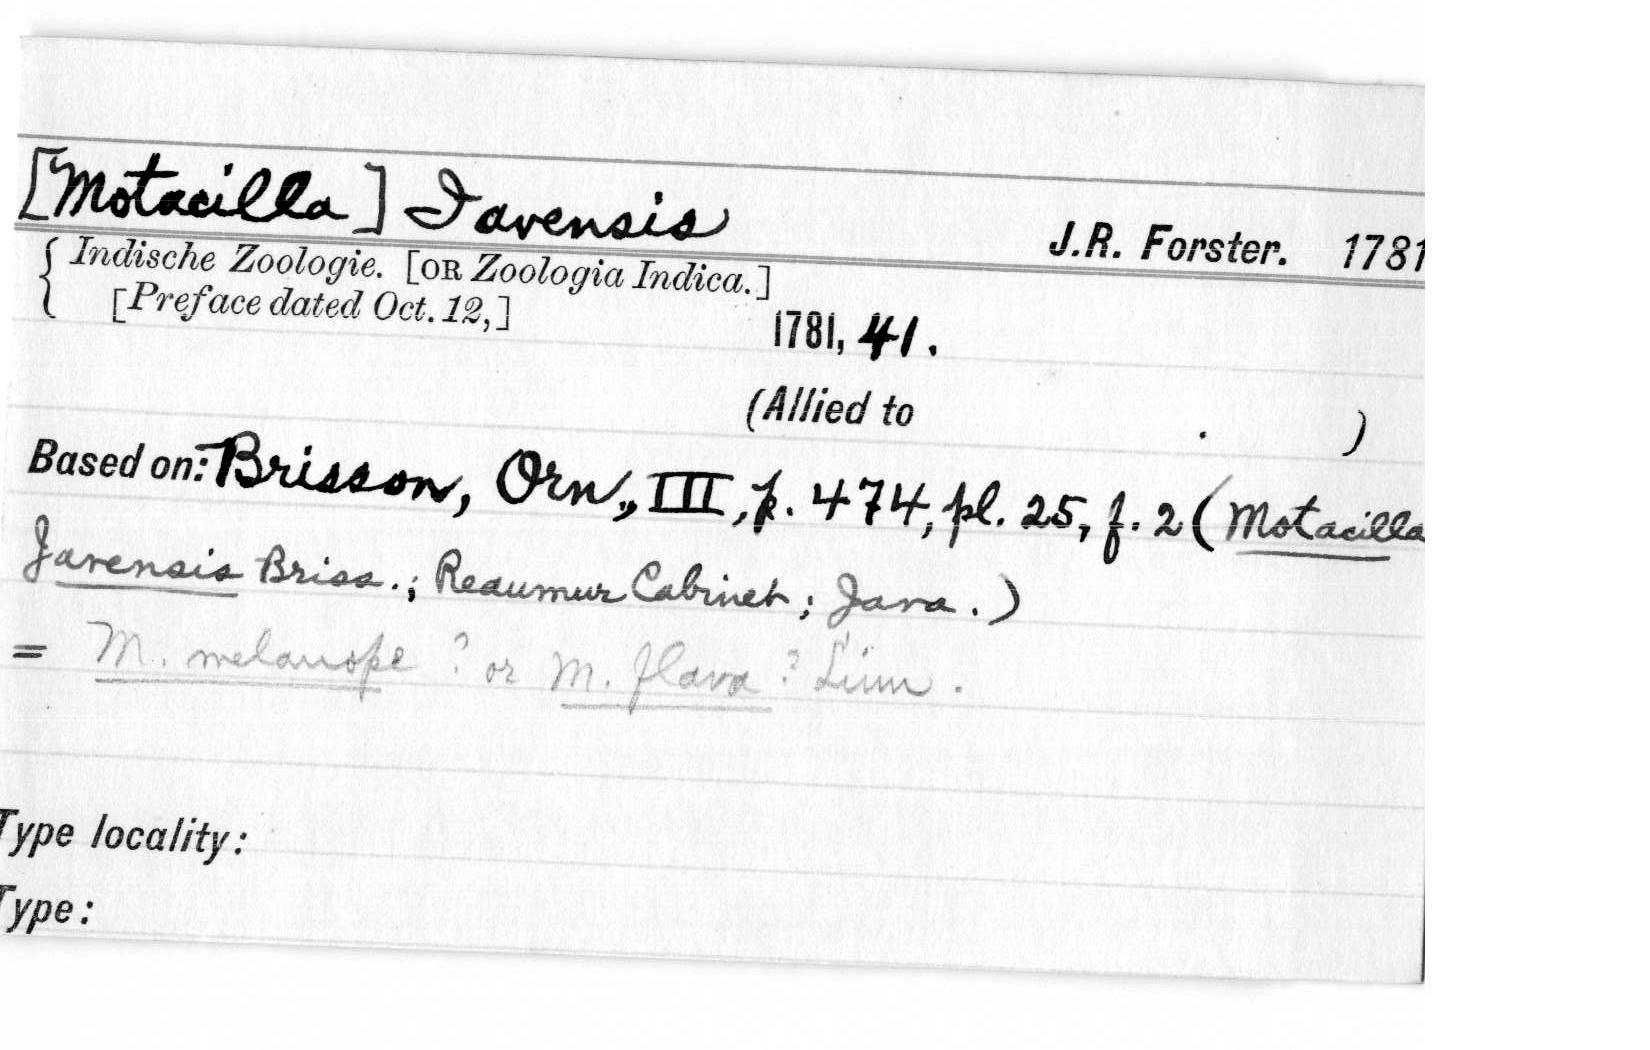 [Motacilla] Javensis
J.R. Forster. 1781
{ Indische Zoologie. [OR Zoologia Indica.]
[Preface dated Oct. 12,]
1781, 41.
(Allied to . )
Based on: Brisson, Orn., III, p. 474, pl. 25, f. 2 (Motacilla
Javensis Briss.; Reaumur Cabinet; Java.)
= M. melanope ? or M. flava ? Linn.
Type locality:
Type: